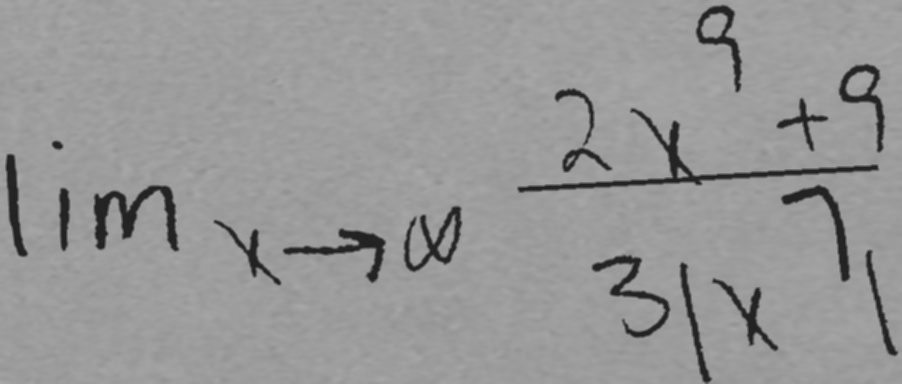 lim x→∞ (2x^9 + 9) / (3|x^7|)